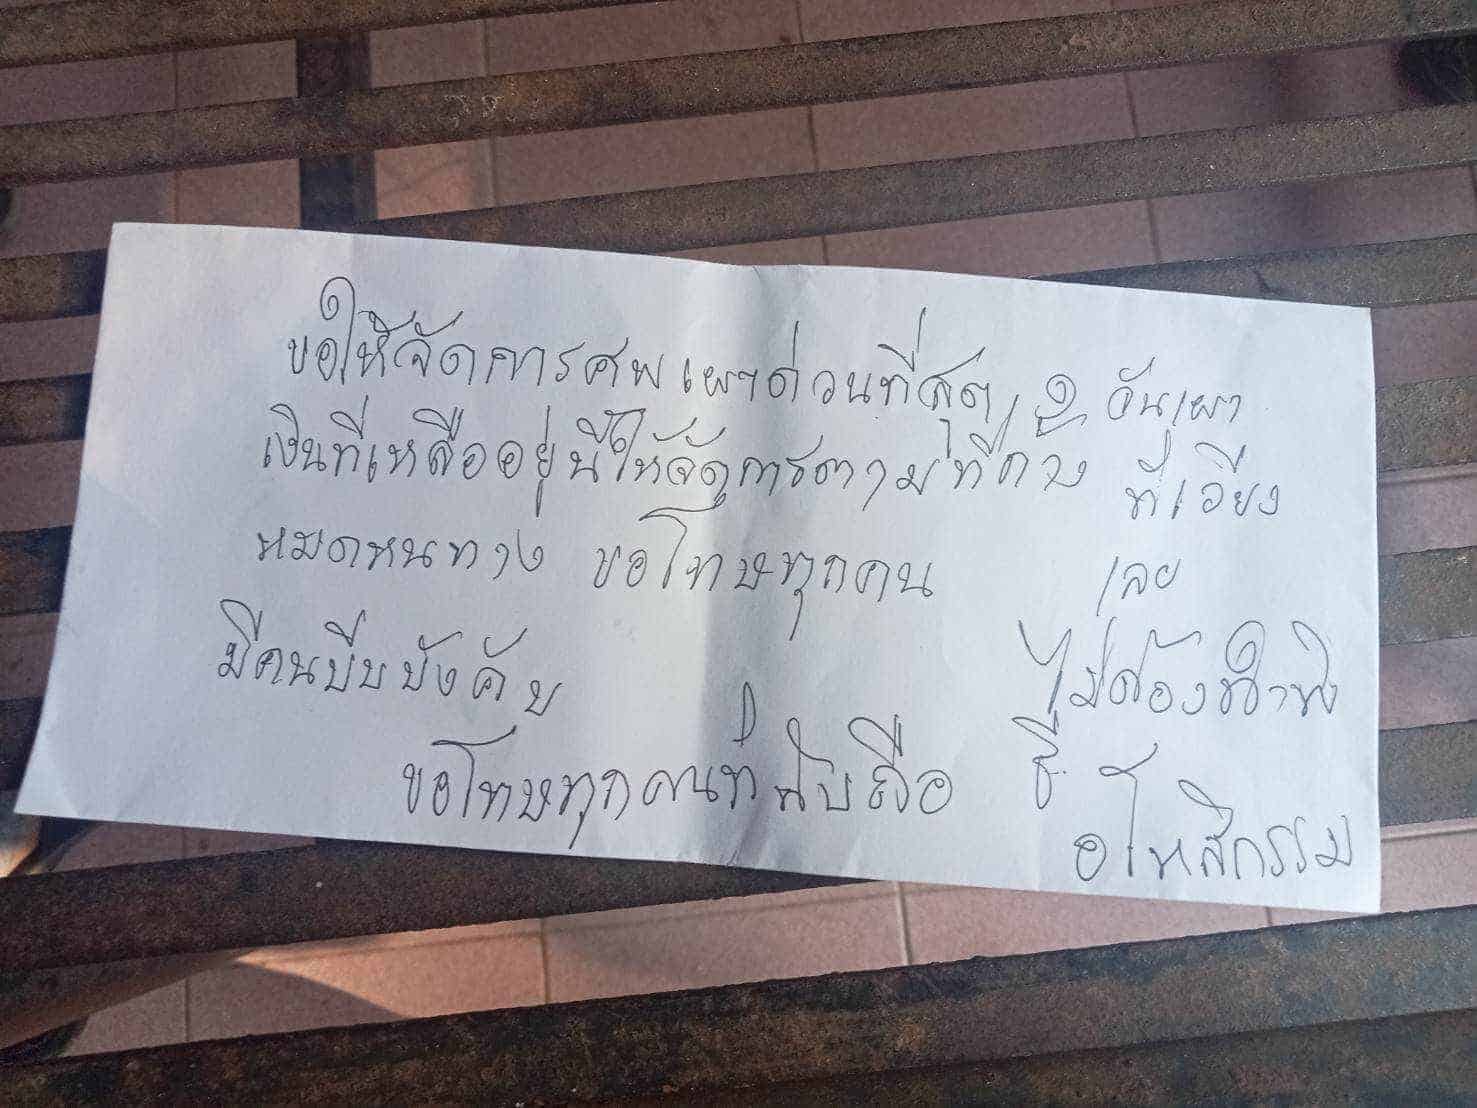 ขอให้จัดการศพเผาด่วนที่สุด ๑ วันเผา
เงินที่เหลืออยู่นี้ให้จัดการตามที่ค้าง ที่เวียง
หมดหนทาง ขอโทษทุกคน เลย
มีคนบีบบังคับ ไม่ต้องทำพิ
ขอโทษทุกคนที่นับถือ ธี
อโหสิกรรม